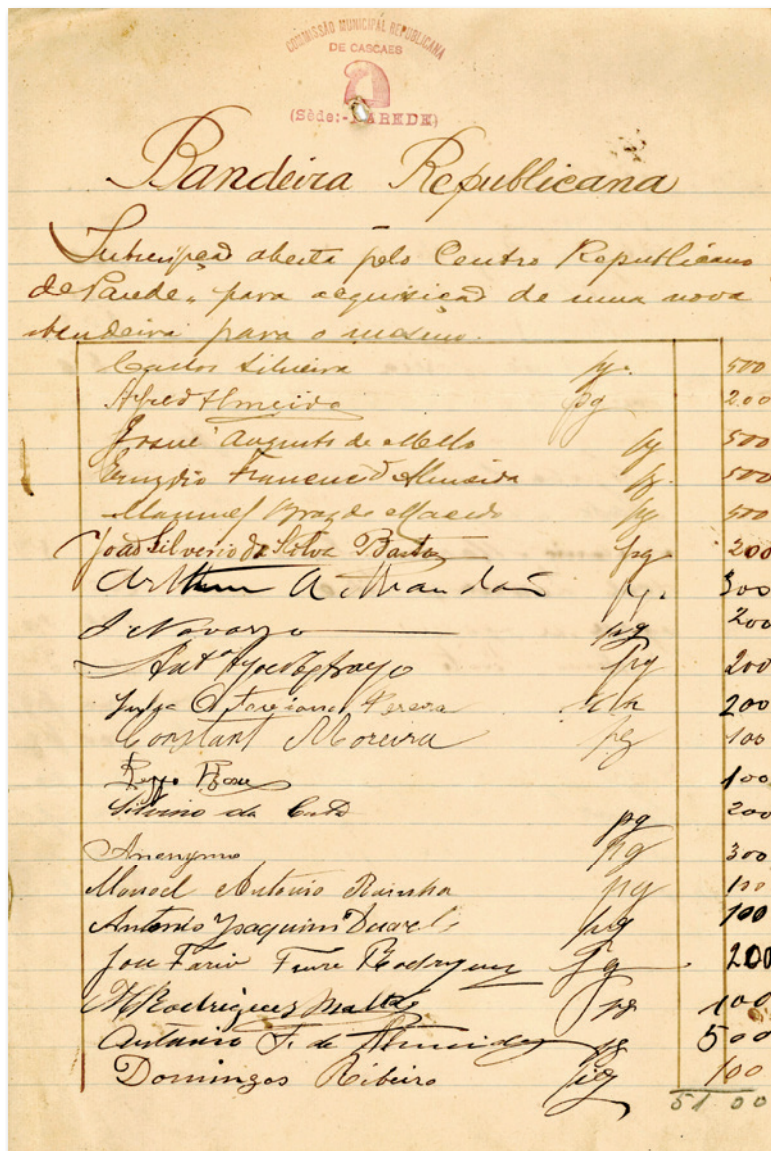 COMMISSÃO MUNICIPAL REPUBLICANA
DE CASCAES
(Séde:-PAREDE)
Bandeira Republicana
Subscripção aberta pelo Centro Republicano
de Parede, para acquisição de uma nova
bandeira para o mesmo.
Carlos Silveira pg. 500
Alfredo Almeida pg 200
Josué Augusto de Mello pg 500
Francisco Almeida pg. 500
Manuel Braz de Macedo pg 500
João Silverio da Silva Bastos pg. 200
Arthur A. Brandão pg. 300
J Navarro pg 200
pg 200
Pereira 200
Constant Moreira pg 100
100
Silvino da Costa pg 200
Anonymo pg 300
Manoel Antonio Rainha pg 100
Antonio Joaquim Duarte pg 100
José Rodrigues pg 200
M Rodrigues Matta pg 100
Antonio F. de Almeida pg 500
Domingos Ribeiro pg 100
51 00